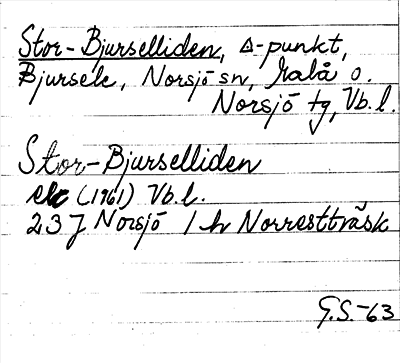 Stor-Bjurselliden, Δ-punkt,
Bjursele, Norsjö sn, Malå o.
Norsjö tg, Vb. l.
Stor-Bjurselliden
ek (1961) Vb. l.
23 J Norsjö 1 h Norrestträsk
G.S.-63